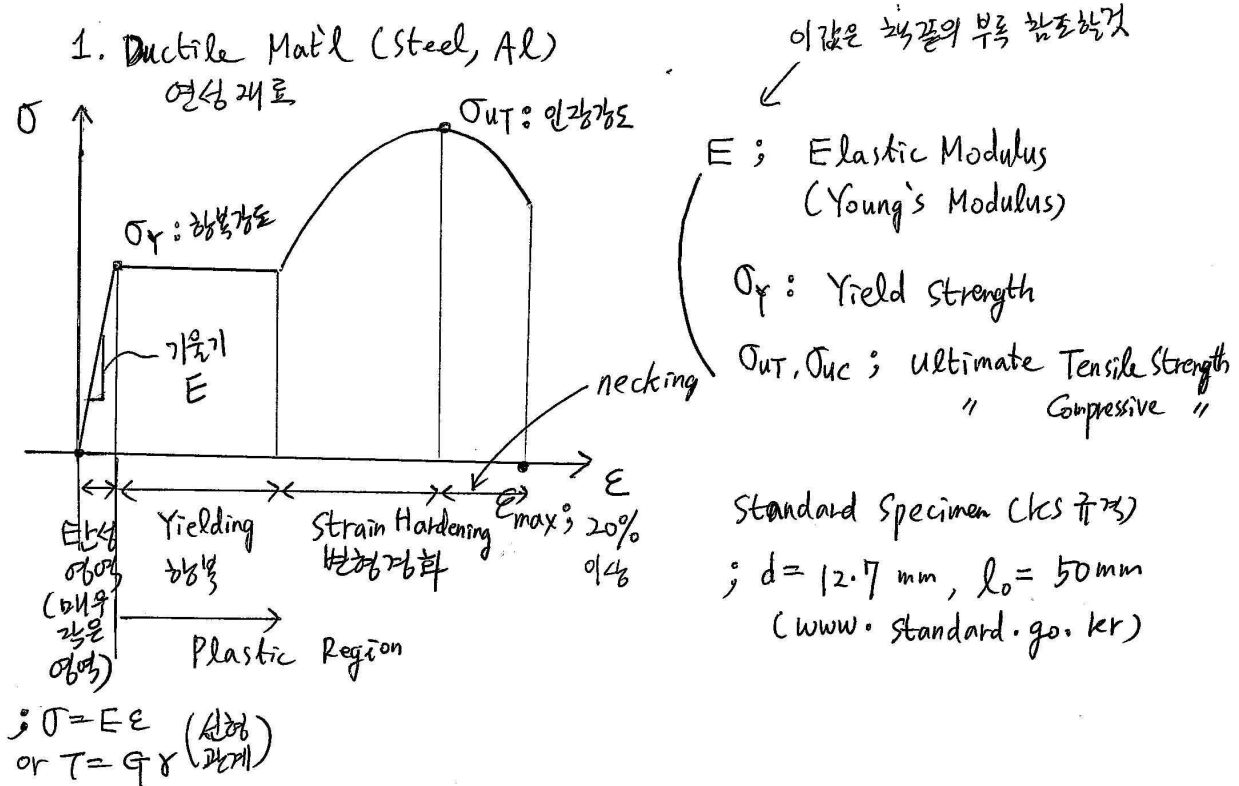 1. Ductile Mat'l (Steel, Al)
연성 재료
이값은 책끝의 부록 참조할것
σ
σUT : 인장강도
σY : 항복강도
기울기
E
necking
ε
탄성
영역
(매우
작은
영역)
Yielding
항복
Strain Hardening
변형경화
εmax ; 20%
이상
Plastic Region
; σ = E ε
or τ = G γ (선형
관계)
E ; Elastic Modulus
(Young's Modulus)
σY : Yield Strength
σUT, σUC ; Ultimate Tensile Strength
" Compressive "
Standard Specimen (KS 규격)
; d = 12.7 mm, l₀ = 50 mm
(www.standard.go.kr)